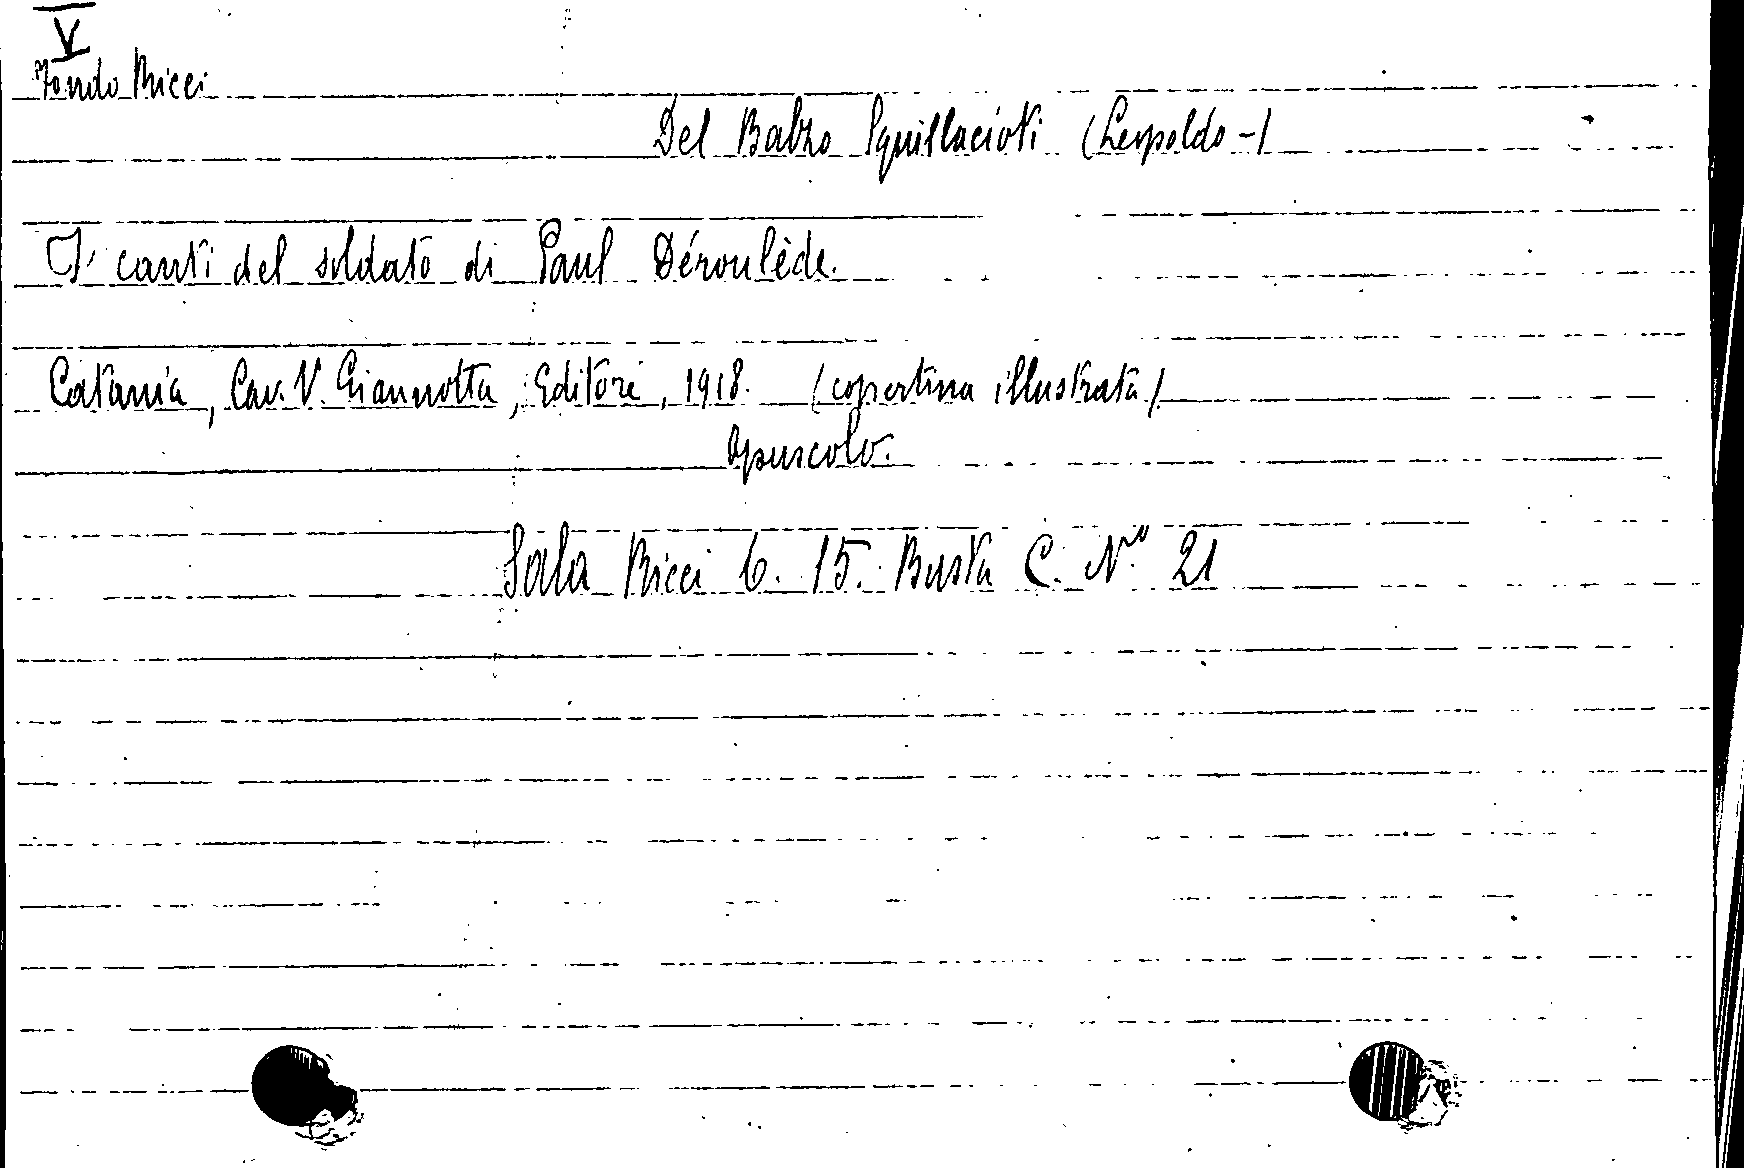 V
Fondo Ricci
Del Balzo Squillacioti (Leopoldo -)
I canti del soldato di Paul Déroulède.
Catania, Cav. V. Giannotta, Editore, 1918. (copertina illustrata)
opuscolo.
Sala Ricci 6. 15. Busta C. Nº 21